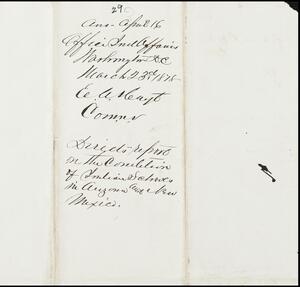 29
Ans - April 16
Office Ind Affairs
Washington DC
March 23d 1878
E. A. Hayt
Comnr
Directs report
on the Condition
of Indian Schools
in Arizona and New
Mexico.